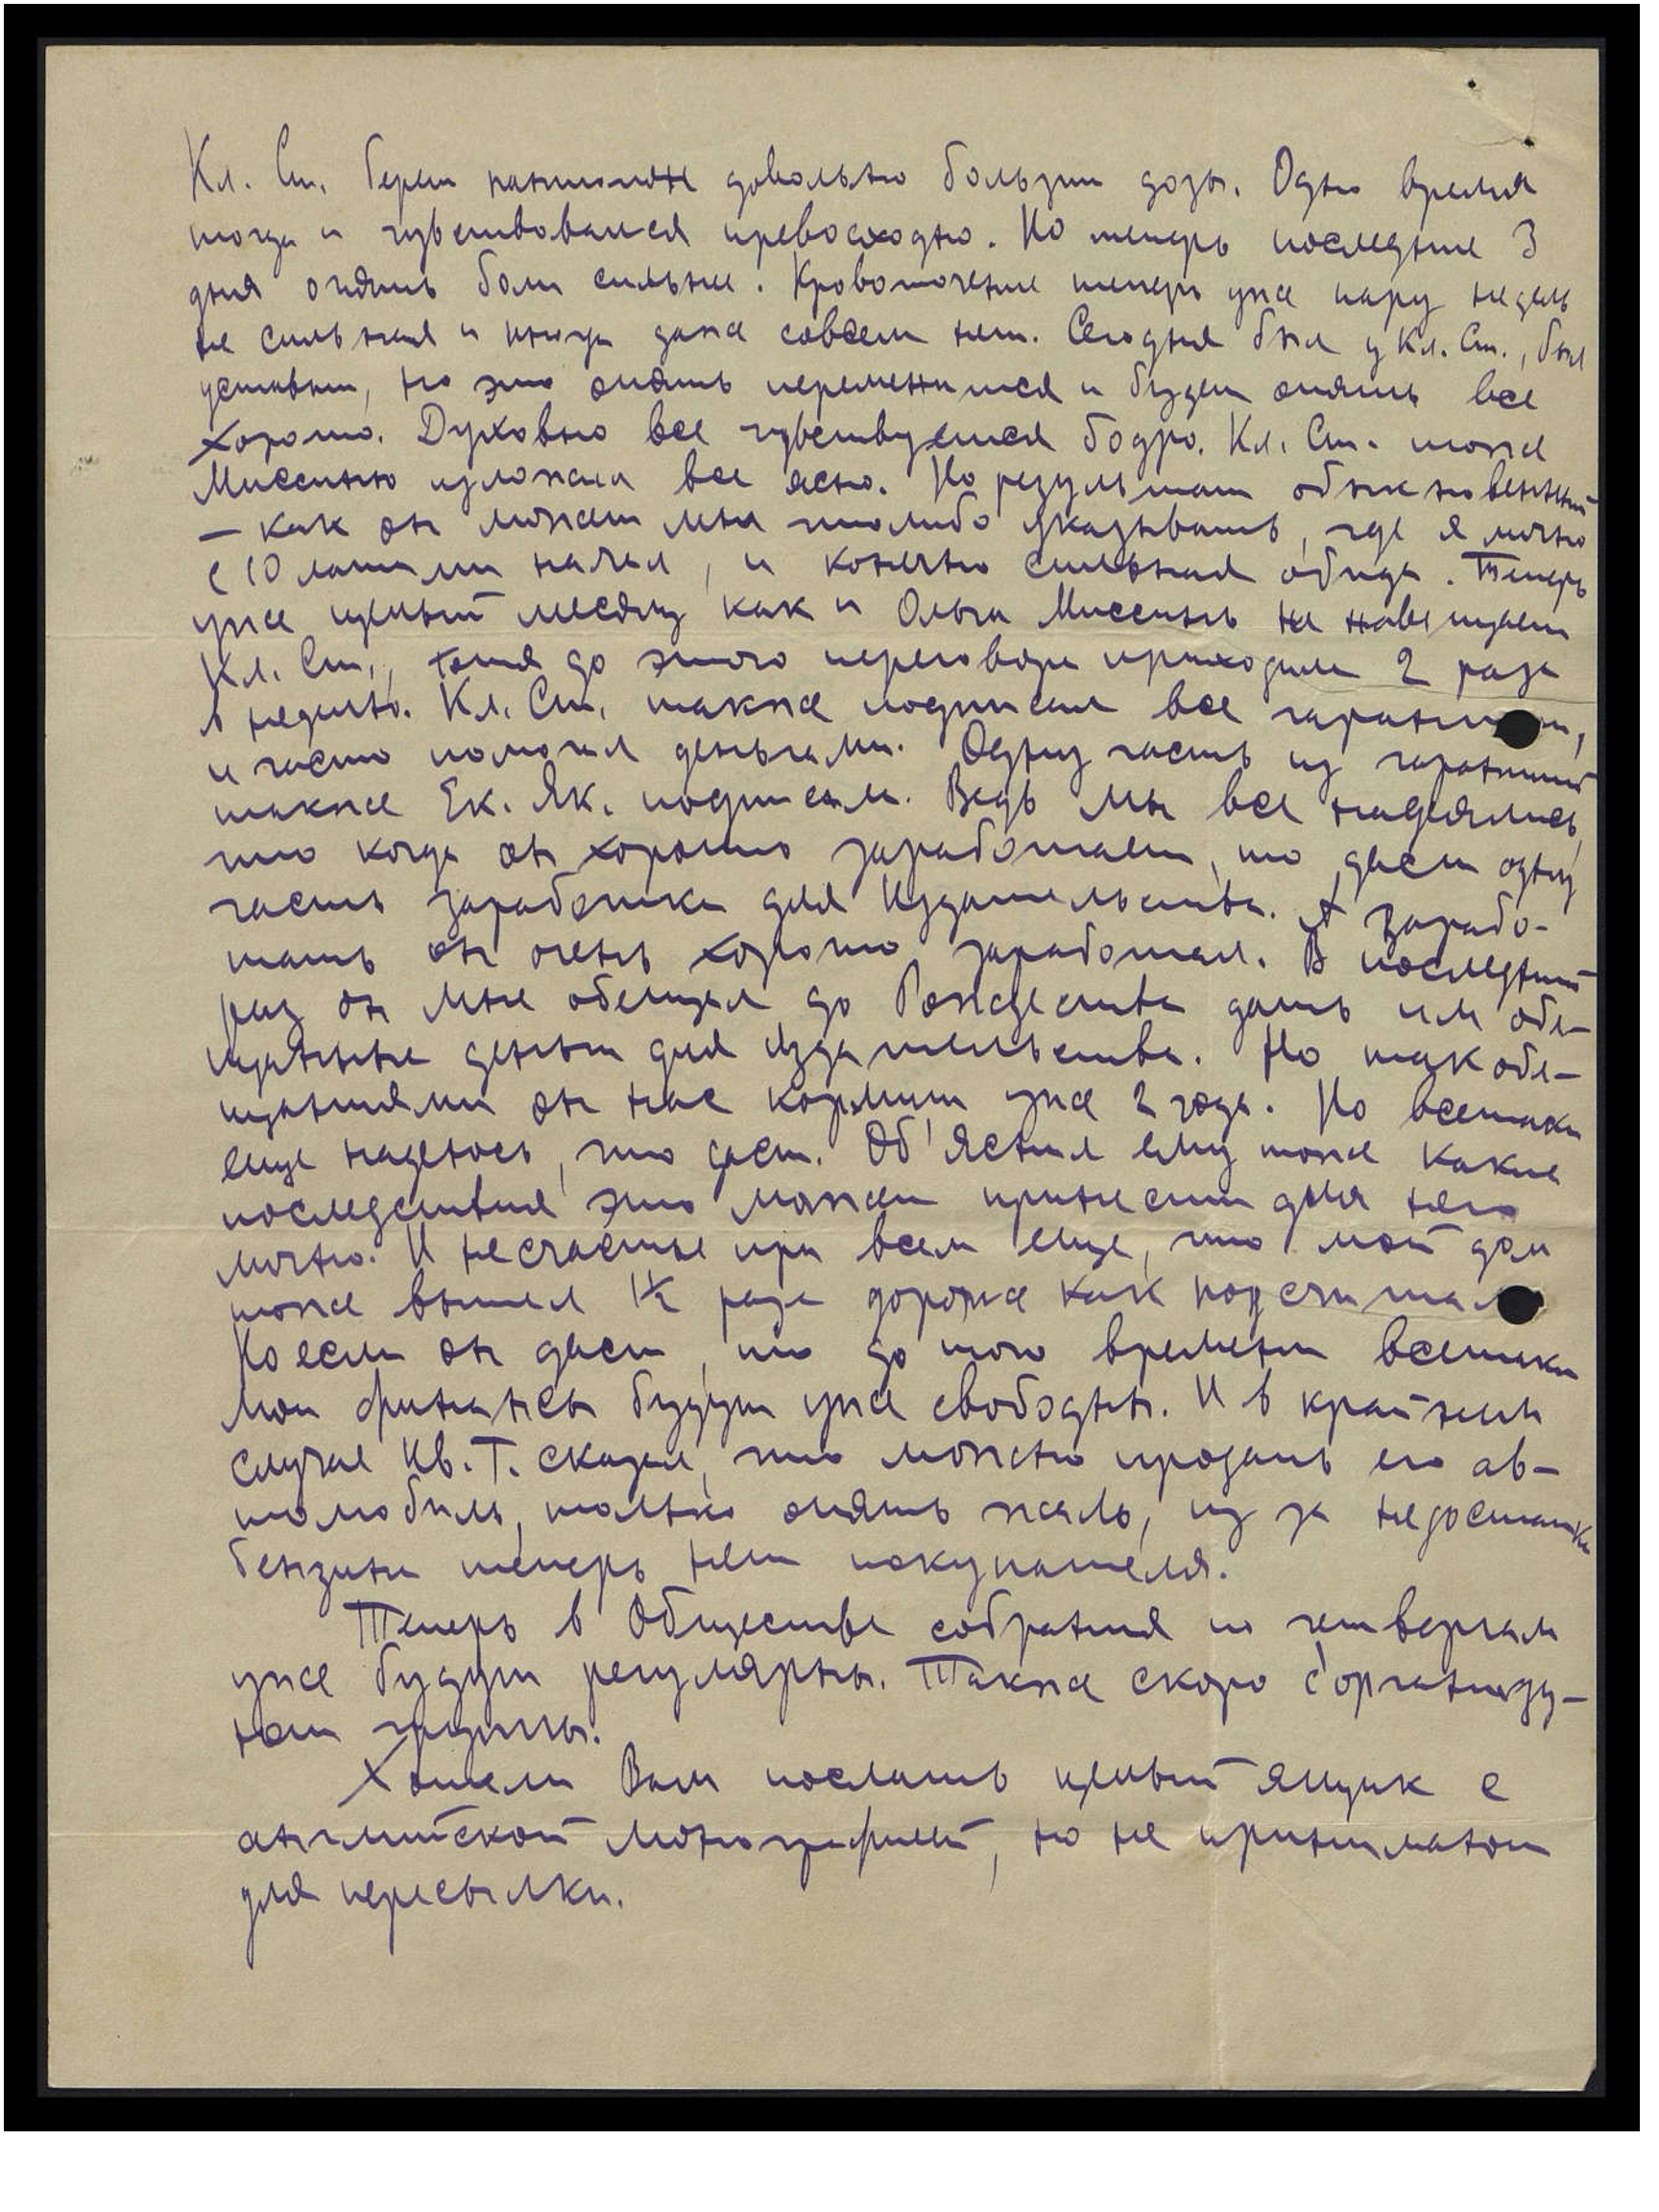 Кл. Ст. берет пантопон довольно большии дозы. Одно время
тогда и чувствовался превосходно. Но теперь последние 3
дня опять боли сильнее. Кровотечение теперь уже пару недель
не сильная и иногда даже совсем нет. Сегодня был у Кл. Ст., был
уставши, но это опять переменится и будет опять все
хорошо. Духовно все чувствуется бодро. Кл. Ст. тоже
Миссиню изложил все ясно. Но результат обыкновенный
– как он может мне чтолибо указывать, где я лично
с 10 латами начал, и конечно сильная обида. Теперь
уже целый месяц как и Ольга Миссинь не навещает
Кл. Ст., хотя до этого переговора приходили 2 раза
в неделю. Кл. Ст. также подписал все гарантии,
и часто помогал деньгами. Одну часть из гарантий
также Ек. Як. подписали. Ведь мы все надеялись,
что когда он хорошо заработает, то даст одну
часть заработка для Издательства. А зарабо-
тать он очень хорошо заработал. В последний
раз он мне обещал до Рождества дать им обе-
щанные деньги для Издательства. Но так обе-
щаниями он нас кормит уже 2 года. Но всетаки
еще надеюсь, что даст. Об'яснил ему тоже какие
последствия это может принести для него
лично. И несчастье при всем еще, что мой дом
тоже вышел 1½ раза дороже как подсчитал
Но если он даст, то до того времени всетаки
мои финансы будут уже свободны. И в крайнем
случае Ив. Г. сказал, что можно продать его ав-
томобиль, только опять жаль, из за недостатка
бензина теперь нет покупателя.
Теперь в Обществе собрания по четвергам
уже будут регулярны. Также скоро с'организу-
ют группы.
Хотели Вам послать целый ящик с
английской монографией, но не принимают
для пересылки.